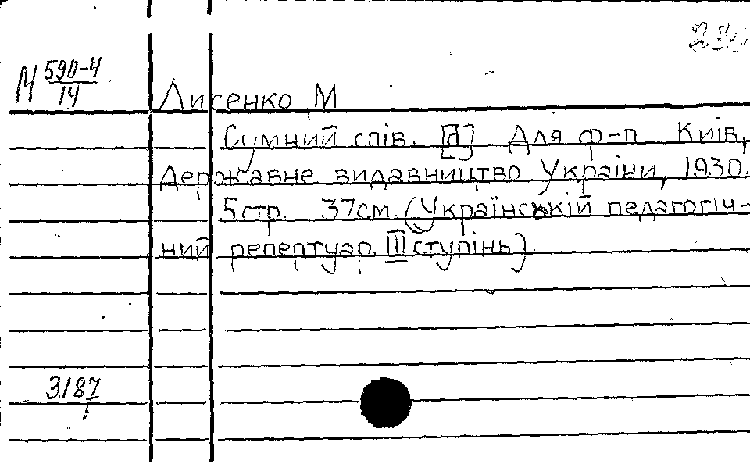 М 590-4
14
Лисенко М
Сумний спів. [Я] Для ф-п Київ,
Державне видавництво України, 1930.
5 стр. 37см. (Український педагогіч-
ний репертуар III ступінь)
3187